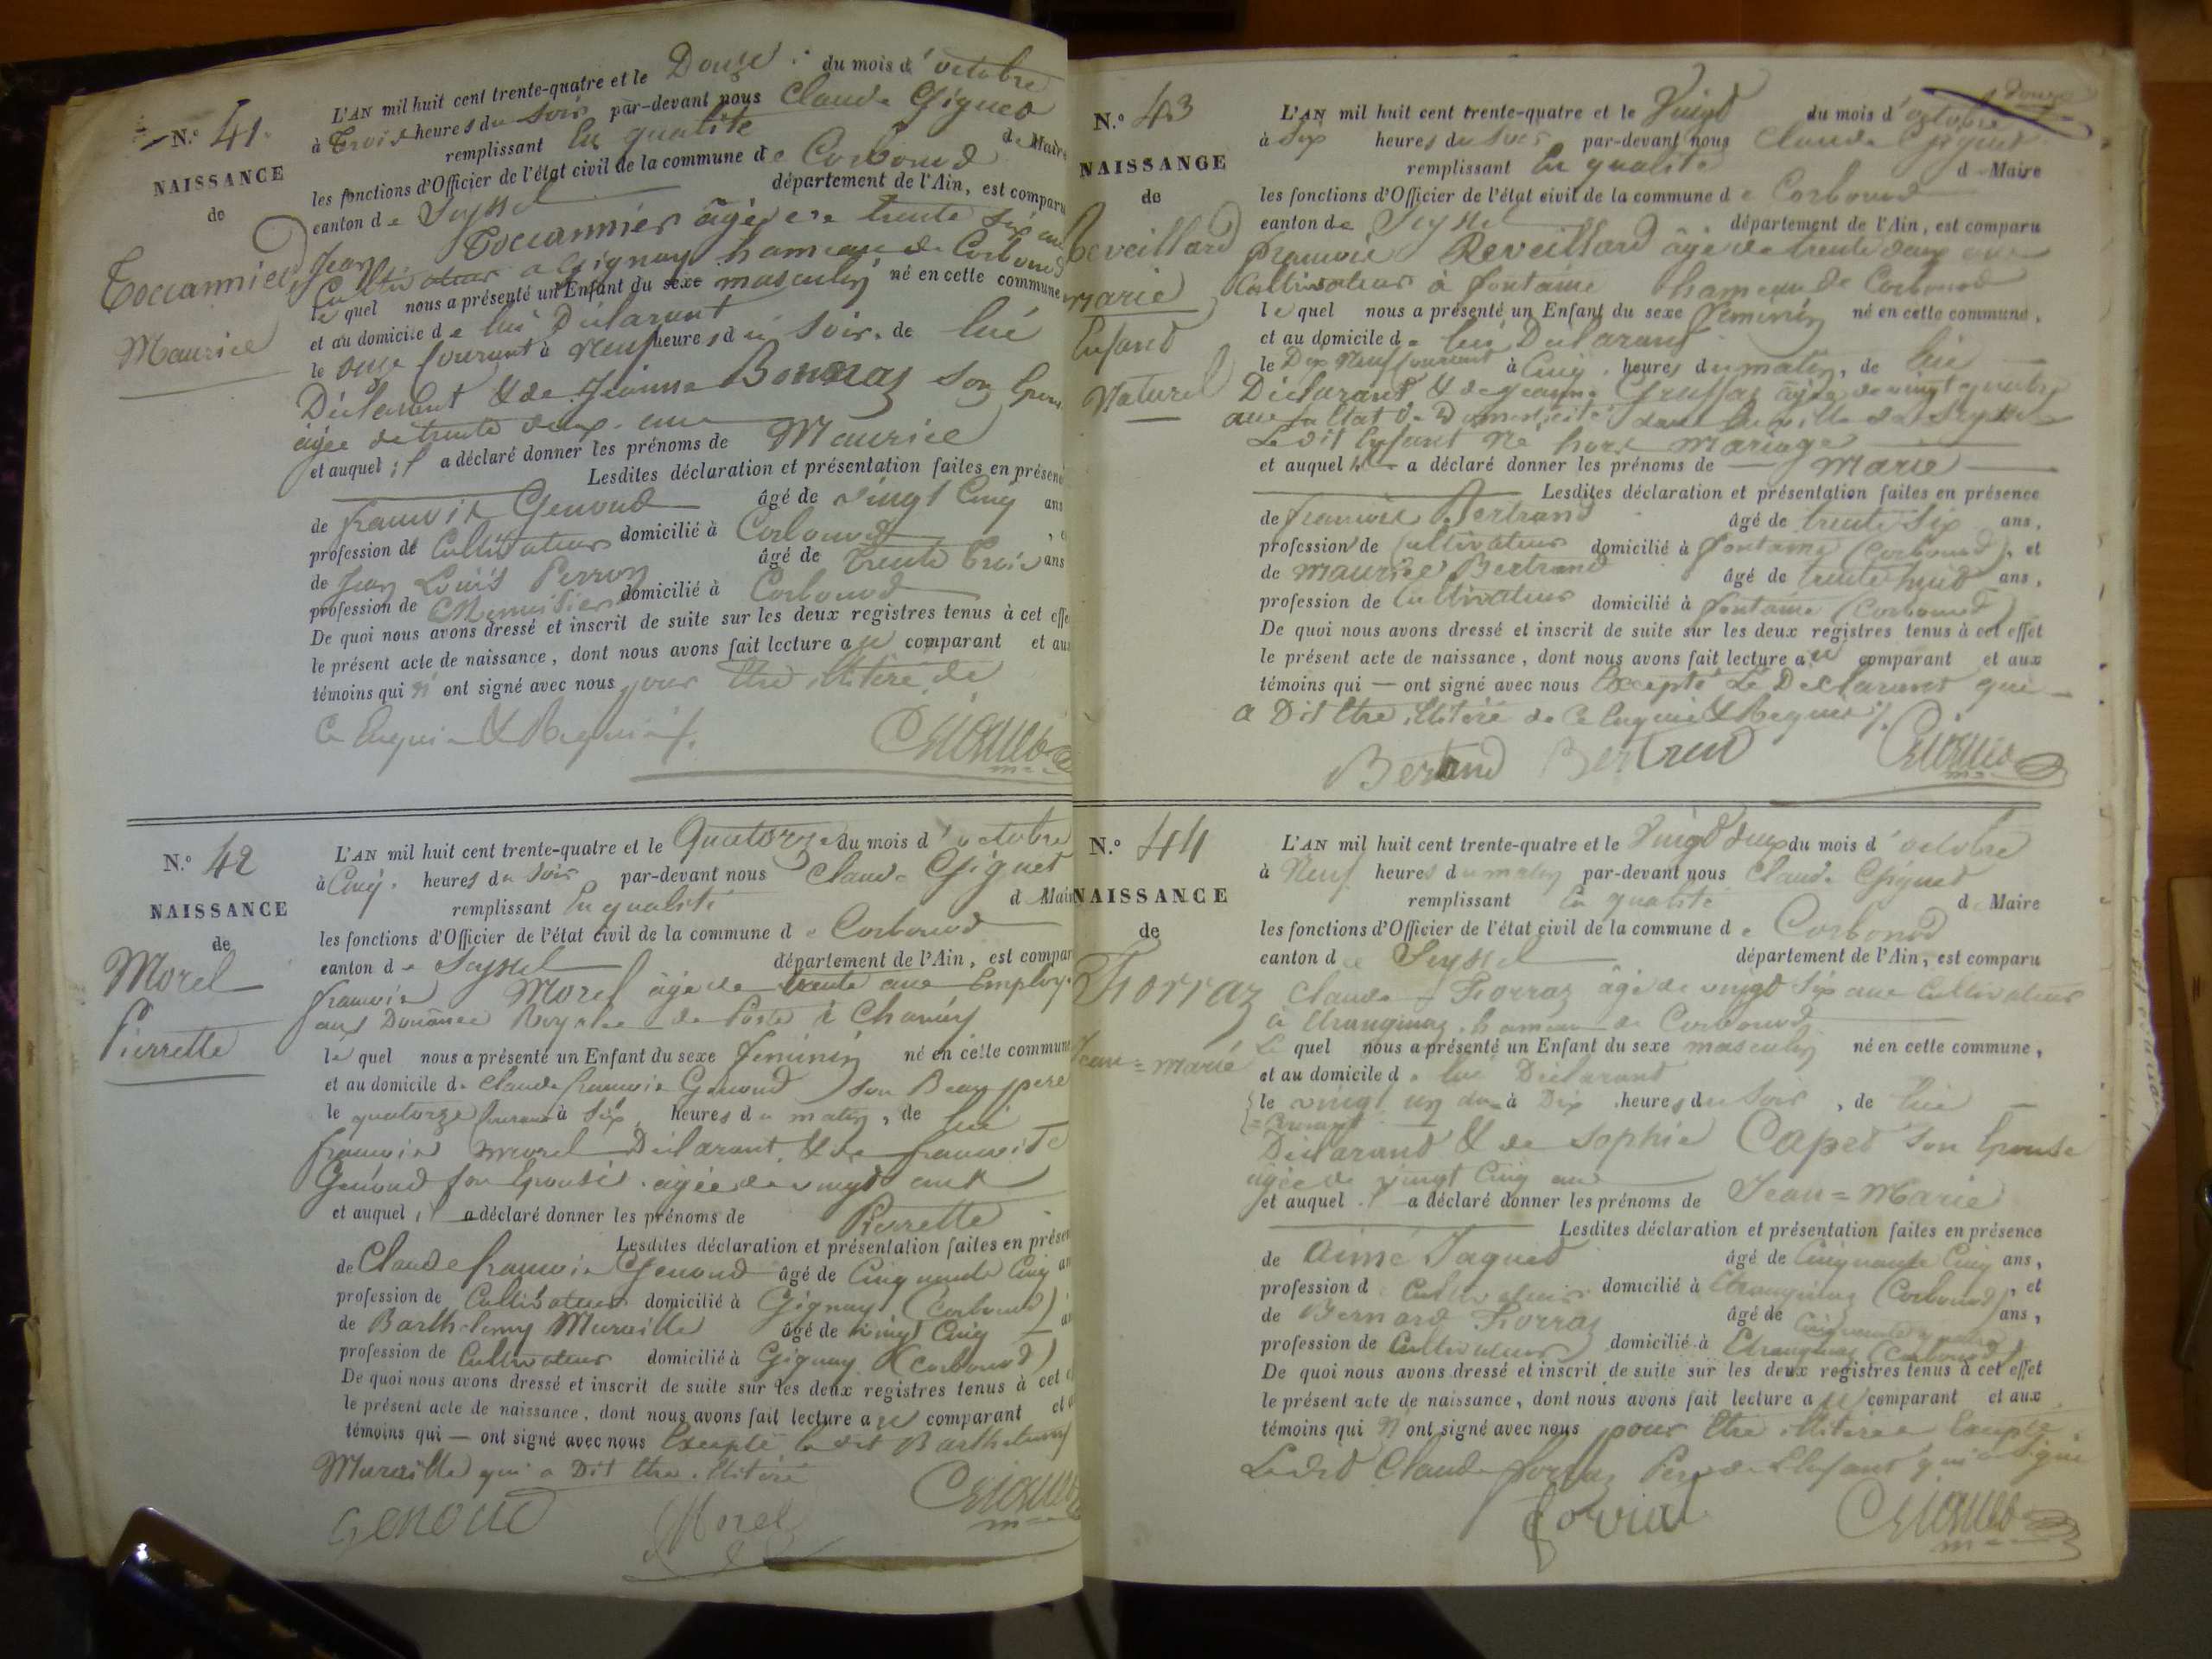 N.º 41.
NAISSANCE
de
Toccannier
Maurice
L'AN mil huit cent trente-quatre et le Douze du mois d'octobre
à Trois heures du Soir par-devant nous Claude Gignet
remplissant En qualité de Maire
les fonctions d'Officier de l'état civil de la commune de Corbonod
canton de Seyssel département de l'Ain, est comparu
Jean Toccannier âgé de trente Six ans
Cultivateur a Gignay hameau de Corbonod
le quel nous a présenté un Enfant du sexe masculin né en cette commune
et au domicile de lui Déclarant
le onze Courant à Neuf heures du Soir, de lui
Déclarant & de Jeanne Bonnaz Son Epouse
âgée de trente deux ans
et auquel il a déclaré donner les prénoms de Maurice
Lesdites déclaration et présentation faites en présence
de francois Genoud âgé de vingt Cinq ans
profession de Cultivateur domicilié à Corbonod, et
de Jean Louis Perron âgé de Trente Trois ans
profession de Menuisier domicilié à Corbonod
De quoi nous avons dressé et inscrit de suite sur les deux registres tenus à cet effet
le présent acte de naissance, dont nous avons fait lecture au comparant et aux
témoins qui n'ont signé avec nous pour Etre illitéré de
Ce Enquis & Requis
N.º 42
NAISSANCE
de
Morel
Pierrette
L'AN mil huit cent trente-quatre et le Quatorze du mois d'octobre
à Cinq heures du Soir par-devant nous Claude Gignet
remplissant En qualité de Maire
les fonctions d'Officier de l'état civil de la commune de Corbonod
canton de Seyssel département de l'Ain, est comparu
francois Morel âgé de trente ans Employé
aux Douanes Royales de Poste à Chanay
le quel nous a présenté un Enfant du sexe feminin né en cette commune
et au domicile de Claude francois Genoud son Beau pere
le quatorze Courant à Six heures du matin, de lui
francois morel Déclarant & de francoise
Genoud son Epouse âgée de vingt ans
et auquel il a déclaré donner les prénoms de Pierrette
Lesdites déclaration et présentation faites en présence
de Claude francois Genoud âgé de Cinquante Cinq ans
profession de Cultivateur domicilié à Gignay (Corbonod)
de Barthelemy Muraille âgé de vingt Cinq
profession de Cultivateur domicilié à Gignay (Corbonod)
De quoi nous avons dressé et inscrit de suite sur les deux registres tenus à cet
le présent acte de naissance, dont nous avons fait lecture au comparant et
témoins qui — ont signé avec nous Excepté le dit Barthelemy
Muraille qui a Dit Etre illitéré
Genoud Morel
N.º 43
NAISSANCE
de
Reveillard
Marie
Enfant
Naturel
L'AN mil huit cent trente-quatre et le Vingt du mois d'octobre
à Six heures du Soir par-devant nous Claude Gignet
remplissant En qualité de Maire
les fonctions d'Officier de l'état civil de la commune de Corbonod
canton de Seyssel département de l'Ain, est comparu
francois Reveillard âgé de trente deux ans
Cultivateur à fontaine hameau de Corbonod
le quel nous a présenté un Enfant du sexe feminin né en cette commune,
et au domicile de lui Déclarant
le Dix Neuf Courant à Cinq heures du matin, de lui
Déclarant & de Jeanne âgée de vingt quatre
ans En Etat de Domesticité dans la ville de Seyssel
Le dit Enfant Né hors mariage
et auquel il a déclaré donner les prénoms de Marie
Lesdites déclaration et présentation faites en présence
de francois Bertrand âgé de trente Six ans,
profession de Cultivateur domicilié à fontaine (Corbonod), et
de Maurice Bertrand âgé de trente huit ans,
profession de Cultivateur domicilié à fontaine (Corbonod)
De quoi nous avons dressé et inscrit de suite sur les deux registres tenus à cet effet
le présent acte de naissance, dont nous avons fait lecture au comparant et aux
témoins qui — ont signé avec nous Excepté Le Déclarant qui
a Dit Etre illitéré de Ce Enquis & Requis
Bertrand
N.º 44
NAISSANCE
de
Forraz
Jean=marie
L'AN mil huit cent trente-quatre et le Vingt deux du mois d'octobre
à Neuf heures du matin par-devant nous Claude Gignet
remplissant En qualité de Maire
les fonctions d'Officier de l'état civil de la commune de Corbonod
canton de Seyssel département de l'Ain, est comparu
Claude Forraz âgé de vingt Six ans Cultivateur
à Etranginaz hameau de Corbonod
Le quel nous a présenté un Enfant du sexe masculin né en cette commune,
et au domicile de lui Déclarant
le vingt un du à Dix heures du Soir, de lui
Courant
Déclarant & de Sophie Capet Son Epouse
âgée de vingt Cinq ans
et auquel il a déclaré donner les prénoms de Jean=Marie
Lesdites déclaration et présentation faites en présence
de Aimé Jaquet âgé de Cinquante Cinq ans,
profession de Cultivateur domicilié à Etranginaz (Corbonod), et
de Bernard Forraz âgé de Cinquante quatre ans,
profession de Cultivateur domicilié à Etranginaz (Corbonod)
De quoi nous avons dressé et inscrit de suite sur les deux registres tenus à cet effet
le présent acte de naissance, dont nous avons fait lecture au comparant et aux
témoins qui n'ont signé avec nous pour Etre illitérés Excepté
Ledit Claude forraz Pere de L'Enfant qui a Signé